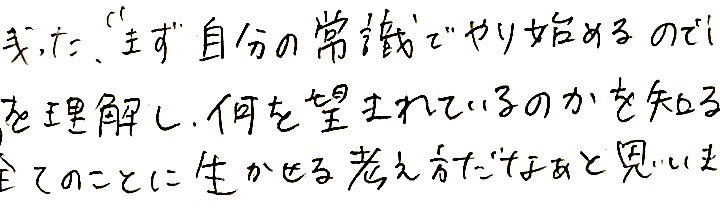 また、“まず自分の常識でやり始めるのでは
を理解し、何を望まれているのかを知る
全てのことに生かせる考え方だなぁと思いま